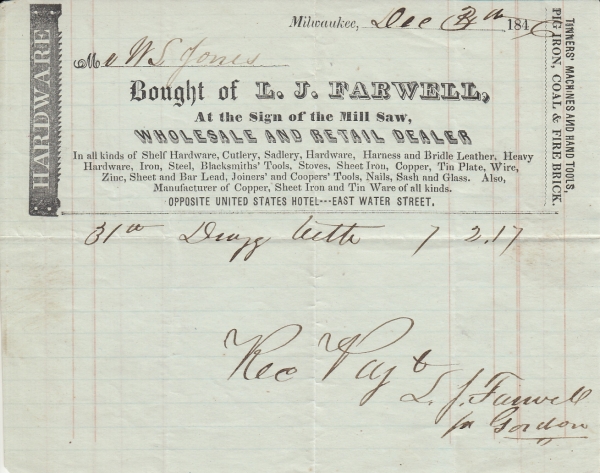 HARDWARE
Milwaukee, Dec 184
TINNERS' MACHINES AND HAND TOOLS,
PIG IRON, COAL & FIRE BRICK.
M W S Jones
Bought of L. J. FARWELL,
At the Sign of the Mill Saw,
WHOLESALE AND RETAIL DEALER
In all kinds of Shelf Hardware, Cutlery, Sadlery, Hardware, Harness and Bridle Leather, Heavy
Hardware, Iron, Steel, Blacksmiths' Tools, Stoves, Sheet Iron, Copper, Tin Plate, Wire,
Zinc, Sheet and Bar Lead, Joiners' and Coopers' Tools, Nails, Sash and Glass. Also,
Manufacturer of Copper, Sheet Iron and Tin Ware of all kinds.
OPPOSITE UNITED STATES HOTEL---EAST WATER STREET.
31 Dragg teeth 7 2.17
Rec Pay t
L. J. Farwell
pr Gordon